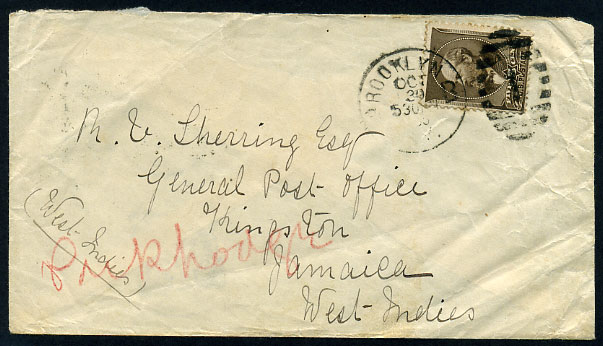 BROOKLYN
OCT
530
M. V. Sherring Esq
General Post Office
Kingston
Jamaica
West Indies
(West Indies)